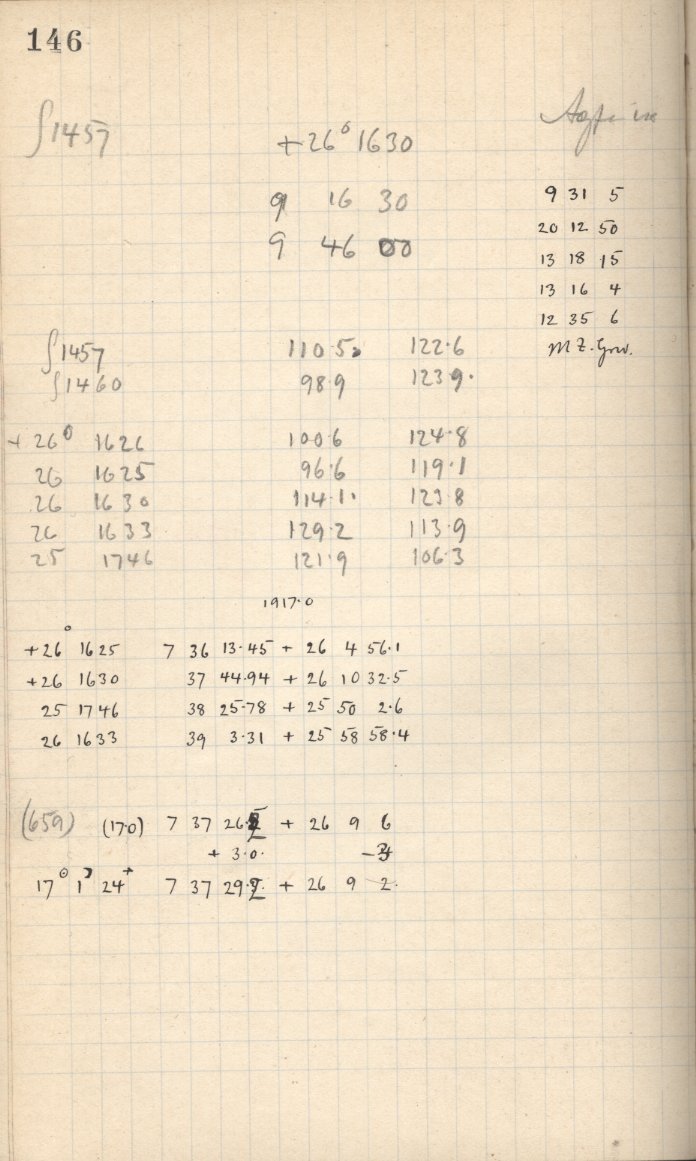 146
∫1457 +26° 1630
9 16 30
9 46 00
9 31 5
20 12 50
13 18 15
13 16 4
12 35 6
M Z. Grw.
∫1457 110·5 122·6
∫1460 98·9 123·9·
+ 26° 1626 100·6 124·8
26 1625 96·6 119·1
26 1630 114·1· 123·8
26 1633 129·2 113·9
25 1746 121·9 106·3
1917·0
+26° 1625 7 36 13·45 + 26 4 56·1
+26 1630 37 44·94 + 26 10 32·5
25 1746 38 25·78 + 25 50 2·6
26 1633 39 3·31 + 25 58 58·4
(659) (17·0) 7 37 26· + 26 9 6
+ 3·0·
17 1 24 7 37 29· + 26 9 2·